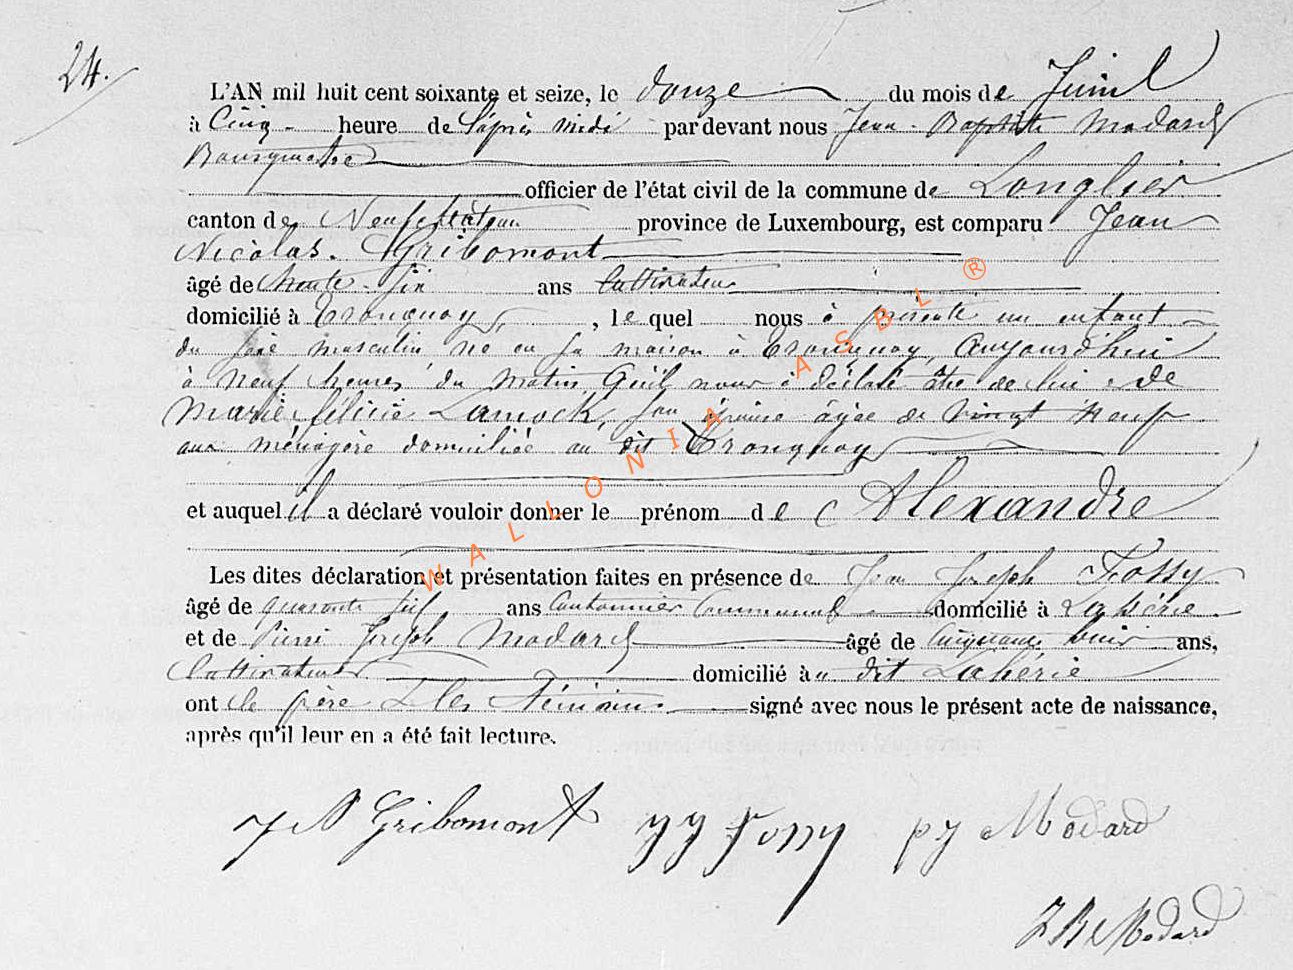 24.
L'AN mil huit cent soixante et seize, le douze du mois de Juin
à Cinq heure de l'après midi par devant nous Jean-Baptiste Modard
Bourgmestre
officier de l'état civil de la commune de Longlier
canton de Neufchâteau province de Luxembourg, est comparu Jean
Nicolas Gribomont
âgé de trente six ans Cultivateur
domicilié à Tronquoy, lequel nous à présenté un enfant
du sexe masculin né en sa maison à Tronquoy, Aujourd'hui
à neuf heures du matin qu'il nous à déclaré être de lui et de
Marie félicie Lamock, son épouse âgée de vingt neuf
ans ménagère domiciliée au dit Tronquoy
et auquel il a déclaré vouloir donner le prénom de Alexandre
Les dites déclaration et présentation faites en présence de Jean Joseph Fossy
âgé de quarante six ans Cantonnier Communal domicilié à Lahérie
et de Pierre Joseph Modard âgé de Cinquante ans,
Cultivateur domicilié au dit Lahérie
ont le père & les témoins signé avec nous le présent acte de naissance,
après qu'il leur en a été fait lecture.
J N Gribomont JJ Fossy PJ Modard
J B Modard
WALLONIA ASBL ®